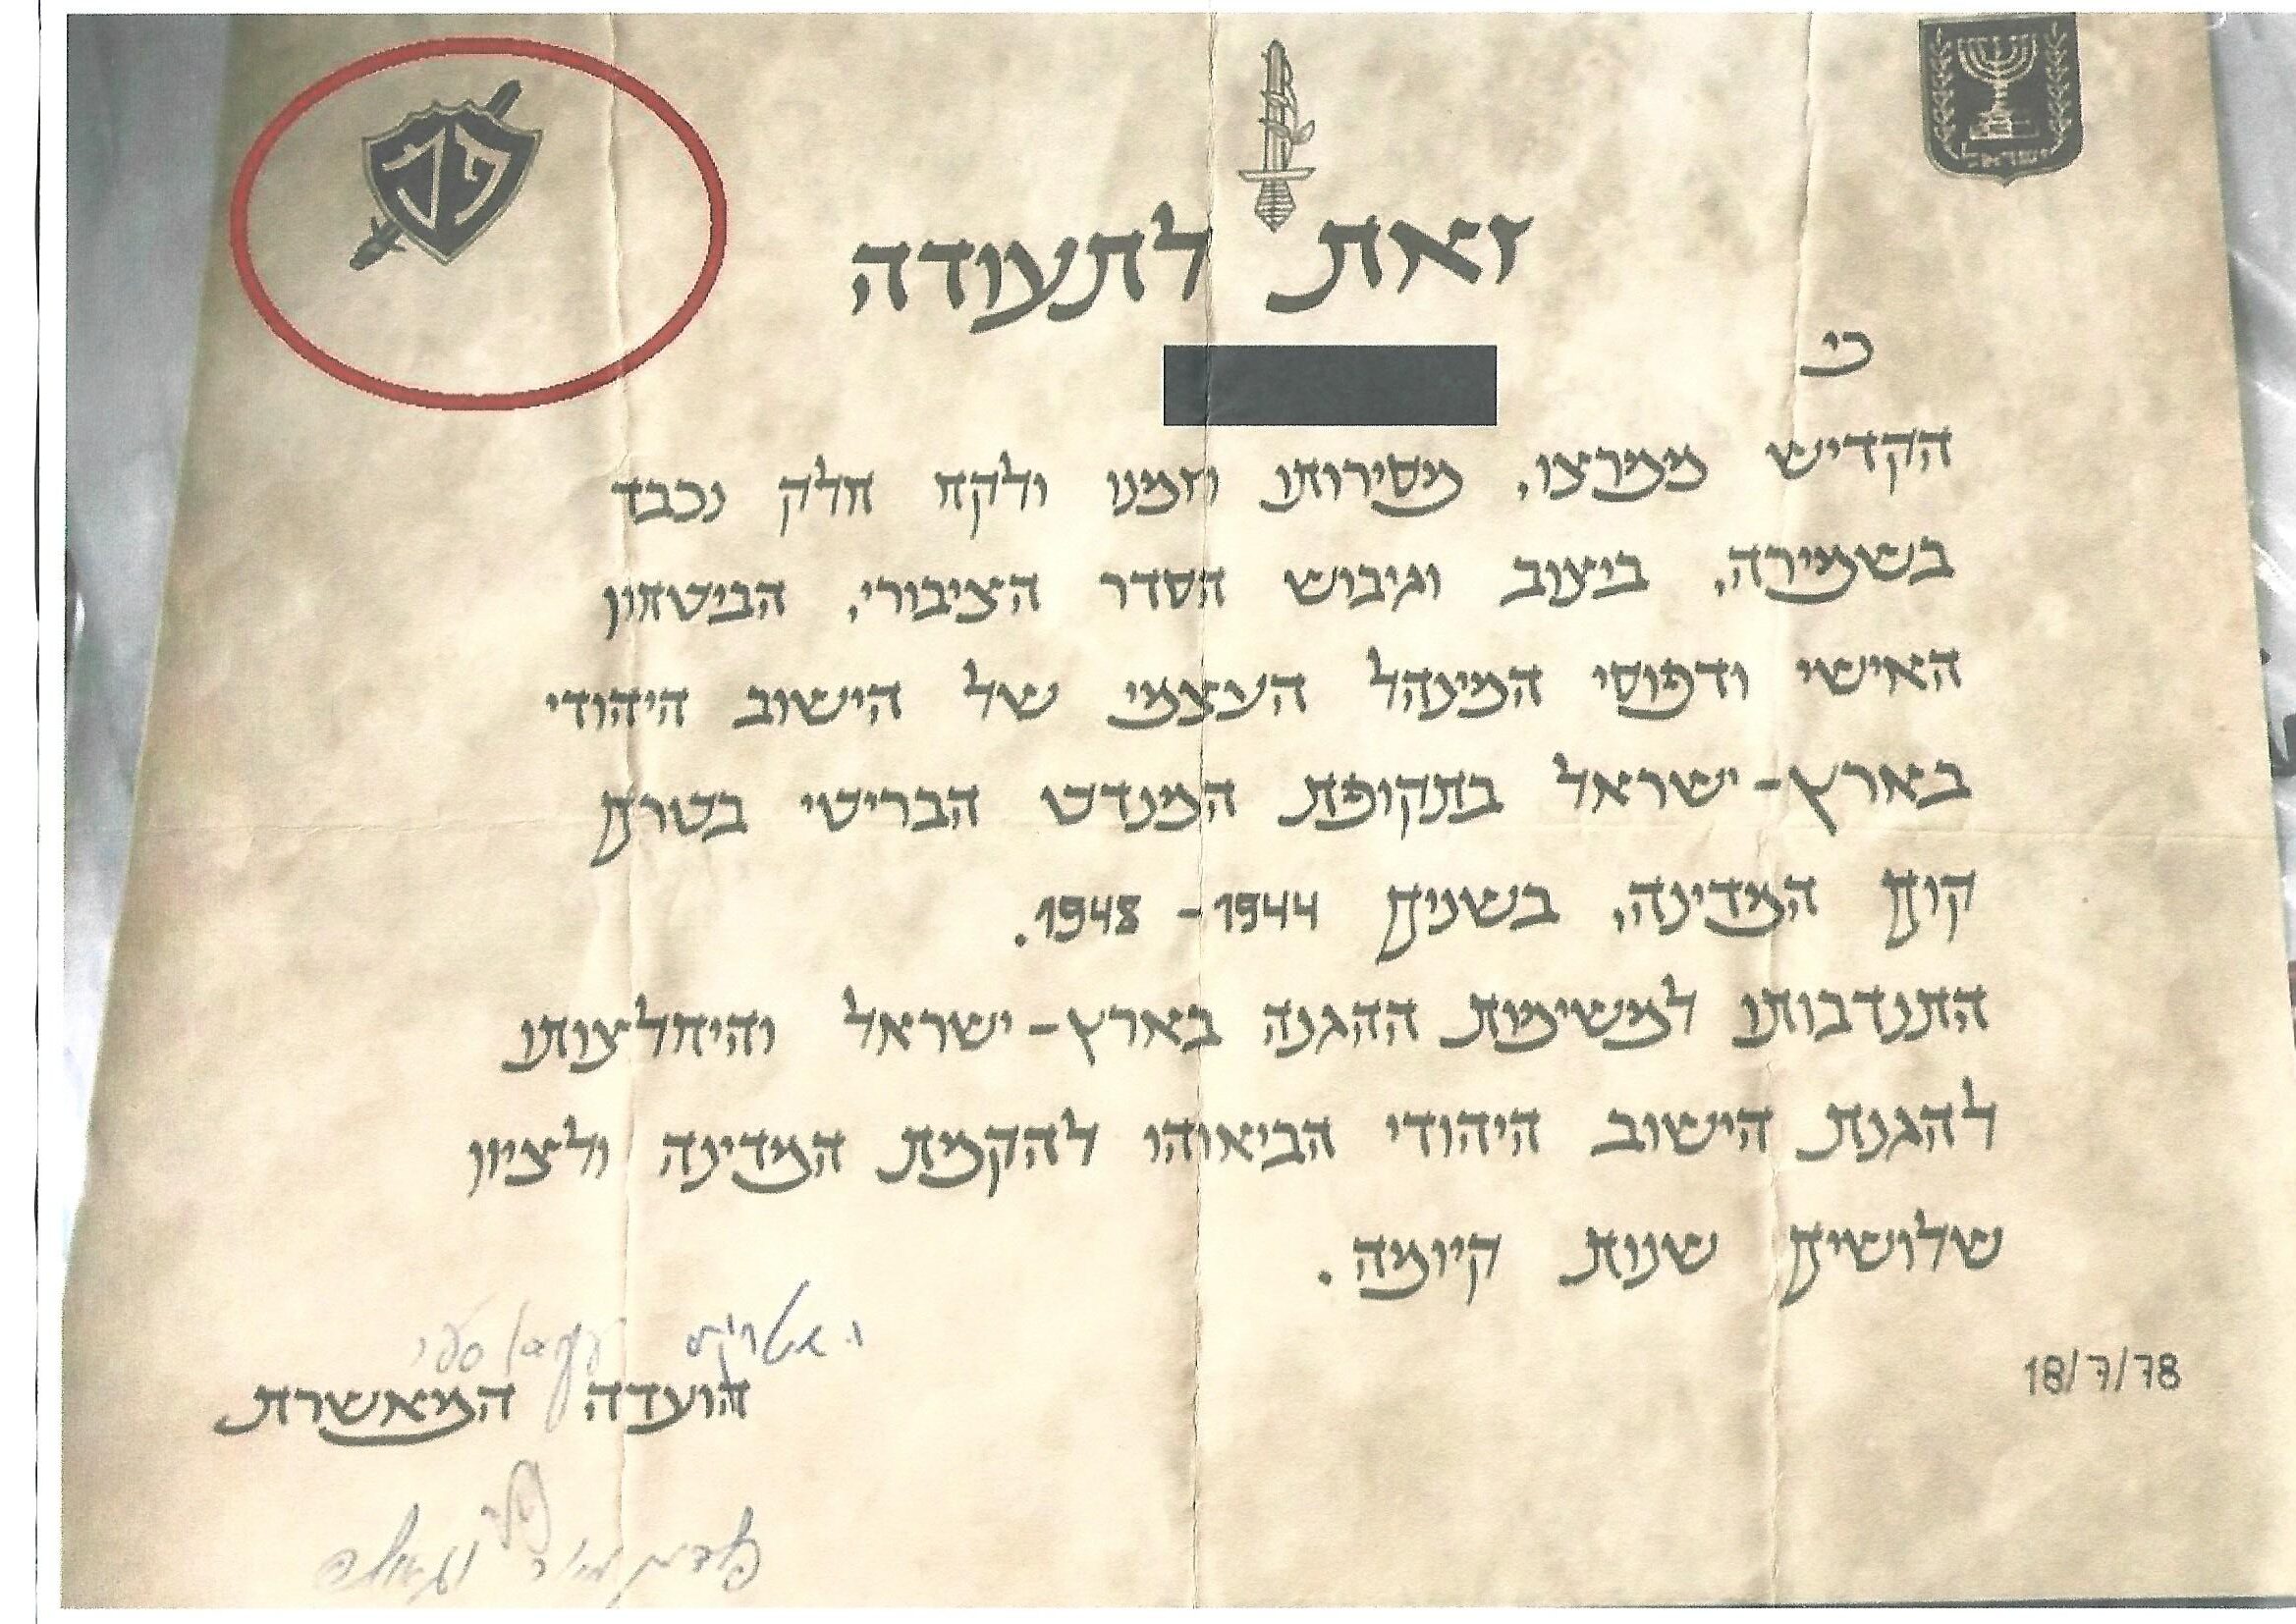 זאת לתעודה
כי
הקדיש ממרצו, מסירותו וזמנו ולקח חלק נכבד
בשמירה, ביצוב וגיבוש הסדר הציבורי, הביטחון
האישי ודפוסי המינהל העצמי של הישוב היהודי
בארץ-ישראל בתקופת המנדט הבריטי בטרם
קום המדינה, בשנים 1944 - 1948.
התנדבותו למשימת ההגנה בארץ-ישראל והיחלצותו
להגנת הישוב היהודי הביאוהו להקמת המדינה ולציון
שלושים שנות קיומה.
18/7/78
הועדה המאשרת